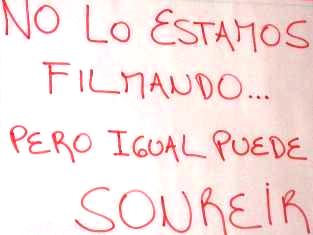 NO LO ESTAMOS
FILMANDO...
PERO IGUAL PUEDE
SONREÍR